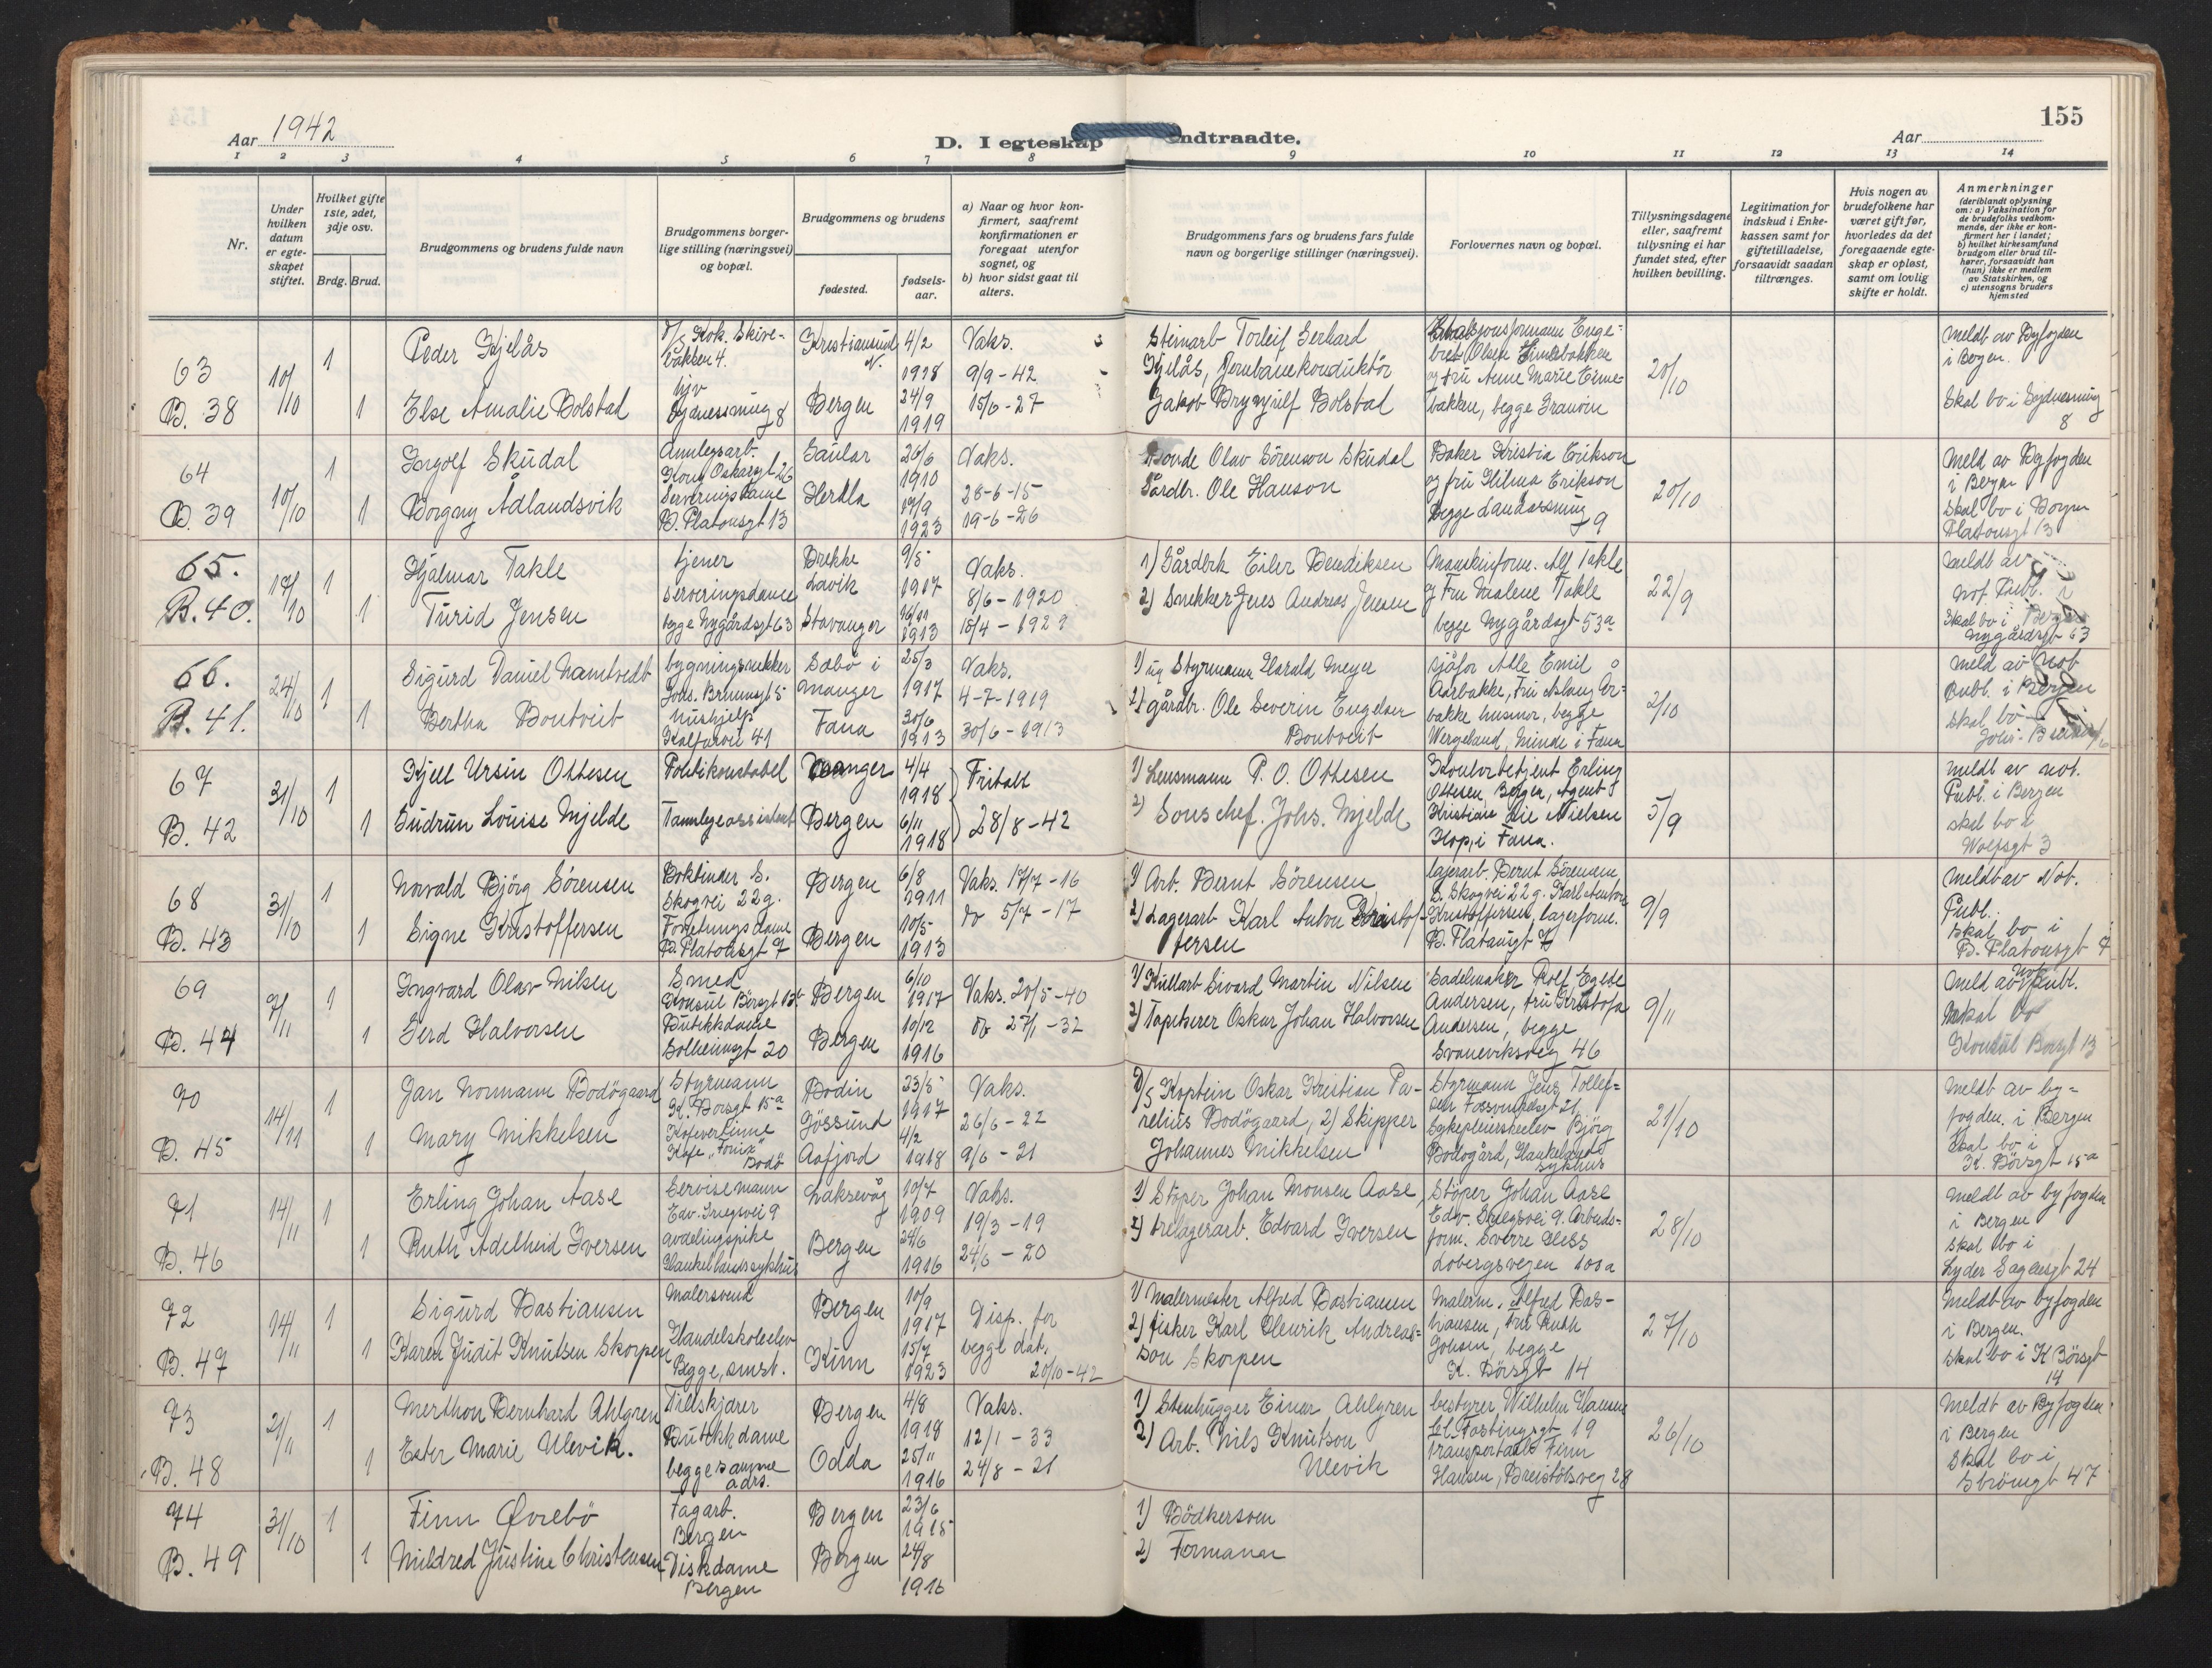 155
Aar 1942
D. I egteskap indtraadte.
Aar
1 2 3 4 5 6 7 8 9 10 11 12 13 14
Nr.
Under hvilken datum er egteskapet stiftet.
Hvilket gifte 1ste, 2det, 3dje osv.
Brdg. Brud.
Brudgommens og brudens fulde navn
Brudgommens borgerlige stilling (næringsvei) og bopæl.
Brudgommens og brudens
fødested.
fødselsaar.
a) Naar og hvor konfirmert, saafremt konfirmationen er foregaat utenfor sognet, og
b) hvor sidst gaat til alters.
Brudgommens fars og brudens fars fulde navn og borgerlige stillinger (næringsvei).
Forlovernes navn og bopæl.
Tillysningsdagene eller, saafremt tillysning ei har fundet sted, efter hvilken bevilling.
Legitimation for indskud i Enkekassen samt for giftetilladelse, forsaavidt saadan tiltrænges.
Hvis nogen av brudefolkene har været gift før, hvorledes da det foregaaende egteskap er opløst, samt om lovlig skifte er holdt.
Anmerkninger
(deriblandt oplysning om: a) Vaksination for de brudefolks vedkommende, der ikke er konfirmert her i landet;
b) hvilket kirkesamfund brudgom eller brud tilhører, forsaavidt han (hun) ikke er medlem av Statskirken, og
c) utensogns bruders hjemsted
63
B. 38
10/10
1
1
Peder Kjelås
Else Amalie Bolstad
Kok. Skivebakken 4.
Kristiansund N.
Bergen
4/2 1918
24/9 1919
Vaks.
9/9-42
15/6-27
Steinarb Torleif Gerhard
Kjelås, Jernbanekonduktör
Jakob Brynjulf Bolstad
og fru Anne Marie
bakken, begge Granvin
20/10
Meldt av Byfogden
i Bergen.
Skal bo i Sydnessmug
8
64
B. 39
10/10
1
1
Ingolf Skudal
Borgny Ådlandsvik
Anleggsarb.
Kong Oskarsgt 26
Serveringsdame
B. Platousgt 13
Gaular
Herdla
26/6 1910
17/9 1923
Vaks.
28-6-15
19-6-26
Bonde Olav Sörenson Skudal
Gårdbr. Ole Hanson
Baker Kristia Erikson
og fru Hilma Erikson
begge
9
20/10
Meld av Byfogden
i Bergen
Skal bo i Bergen
Platousgt 13
65.
B. 40.
17/10
1
1
Hjalmar Takle
Turid Jensen
tjener
serveringsdame
begge Nygårdsgt 63
Brekke
Lavik
Stavanger
9/5 1917
1913
Vaks.
8/6-1920
18/4-1929
1) Gårdbrk Eiler Bendiksen
2) Snekker Jens Andreas Jensen
Maskinform. Alf Takle
og Fru Malene Takle
begge Nygårdsgt 53a
22/9
meldt av
Not. Publ. i
Skal bo i Bergen
Nygårdsgt 63
66.
B. 41.
24/10
1
1
Sigurd Daniel Namtvedt
Bertha Bontveit
bygningssnekker
Johs. Brunsgt 5
hushjelp
Kalfarvei 41
Sæbö i
Manger
Fana
25/3 1917
30/6 1913
Vaks.
4-7-1919
30/6-1913
1) Styrmann Harald Meyer
2) gårdbr. Ole Severin Engelsen
Bontveit
sjåför Atle Emil
Aarbakke, Fru Aslaug År=
bakke husmor, begge
Wergeland, Minde i Fana
2/10
Meld av Not
Publ. i Bergen
skal bo
67
B. 42
31/10
1
1
Kjell Ursin Ottesen
Gudrun Louise Mjelde
Politikonstabel
Tannlegeassistent
Bergen
4/4 1918
6/11 1918
Fritatt
28/8-42
1) Lensmann P. O. Ottesen
2) Johs. Mjelde
Kontorbetjent Erling
Ottesen Bergen, Agent
Kristian Lie Nielsen
Hop, i Fana.
5/9
Meldt av Not.
Publ. i Bergen
skal bo i
3
68
B. 43
31/10
1
1
Norvald Björg Sörensen
Signe Kristoffersen
Bokbinder S.
Skogvei 22g.
Forretningsdame
B. Platousgt 7
Bergen
Bergen
6/8 1911
10/5 1913
Vaks. 17/7-16
do 5/7-17
1) Arb. Bernt Sörensen
2) Lagerarb Karl Anton Kristof-
fersen
lagerarb. Bernt Sörensen,
S. Skogvei 22g. Karl Anton
Kristoffersen, lagerform.
B. Platousgt 7
9/9
Meldt av Not.
Publ.
skal bo i
B. Platousgt 7
69
B. 44
7/11
1
1
Ingvard Olav Nilsen
Gerd Halvorsen
Smed
Konsul Börsgt 13b
Butikkdame
Solheimsgt 20
Bergen
Bergen
6/10 1917
10/12 1916
Vaks. 20/5-40
do 27/1-32
1) Kullarb Sivard Martin Nilsen
2) Tapetserer Oskar Johan Halvorsen
Sadelmaker Rolf Egede
Andersen, fru Kristofa
Andersen, begge
Svaneviksveg 46
9/11
Meld av Not Publ.
skal bo
Konsul Borsgt 13
70
B. 45
14/11
1
1
Jan Normann Bodögaard
Mary Mikkelsen
Styrmann
K. Borsgt 15a
Kafe "Fönix"
Bodö
Bodin
Jössund
Aafjord
23/5 1917
4/2 1918
Vaks.
26/6-22
9/6-21
Kaptein Oskar Kristian Pa-
relius Bodögaard, 2) Skipper
Johannes Mikkelsen
Styrmann Jens Tollef=
sen
Björg
Bodögård, Haukeland
sykhus
21/10
Meldt av by=
fogden i Bergen
Skal bo i
K. Börsgt 15a
71
B. 46
14/11
1
1
Erling Johan Aase
Ruth Adelheid Iversen
Servisemann
Edv. Griegsvei 9
avdelingspike
Haukelandssykhus
Laksevåg
Bergen
10/7 1909
24/6 1916
Vaks.
19/3-19
24/6-20
1) Stöper Johan Monsen Aase,
2) trelagerarb. Edvard Iversen
Stöper Johan Aase
Edv. Griegsvei 9. Arbeids-
form. Sverre Hess
Lobergsvegen 100a
28/10
Meldt av byfogden
i Bergen
Skal bo i
Lyder Sagensgt 24
72
B. 47
14/11
1
1
Sigurd Bastiansen
Karen Judit Knutsen Skorpen
Malersvend
Handelskoleelev
Begge smst.
Bergen
Kinn
10/9 1917
15/7 1923
Disp. for
begge dat.
20/10-42
1) Malermester Alfred Bastiansen
2) fisker Karl Olenrik Andreas=
son Skorpen
Malerm. Alfred Bas-
tiansen, Fru Ruth
Johsen, begge
K. Börsgt 14
27/10
Meldt av byfogden
i Bergen.
Skal bo i K Börsgt
14
73
B. 48
21/11
1
1
Merthon Bernhard Ahlgren
Ester Marie Ulevik.
Tilskjærer
Butikkdame
begge samme
adrs.
Bergen
Odda
4/8 1918
25/11 1916
Vaks.
12/1-33
24/8-21
1) Stenhugger Einar Ahlgren
2) Arb. Nils Knutson
Ulevik
bestyrer Wilhelm Hansen
Cl. Fastingsgt 19
Finn
Hansen, Breistölsveg 28
26/10
Meldt av Byfogden
i Bergen
Skal bo i
Strömgt 47
74
B. 49
31/10
1
1
Finn Øvrebö
Mildred Justine Christensen
Fagarb.
Bergen
Diskdame
Bergen
Bergen
Bergen
23/6 1915
24/8 1916
1) Bödkersven
2) Formann